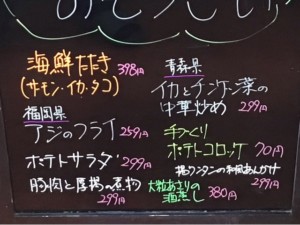 海鮮たたき 398円
(サーモン・イカ・タコ)
福岡県
アジのフライ 259円
ポテトサラダ 299円
豚肉と厚揚の煮物
299円
青森県
イカとチンゲン菜の
中華炒め 299円
手づくり
ポテトコロッケ 70円
揚ワンタンの和風あんかけ
299円
大粒あさりの
酒蒸し 380円